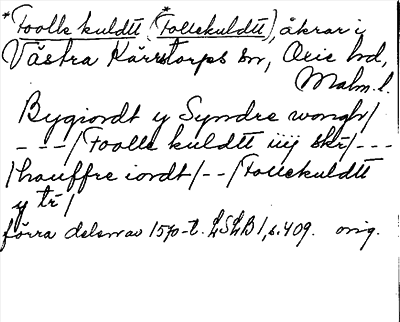 *Foolle kuldtt (*Follekuldtt), åkrar i
Västra Kärrstorps sn, Oxie hd,
Malm. l.
Bygiordt y Syndre wongh/
---/Foolle kuldtt iiij skr/---
/houffre iordt/--/Follekuldtt
y tr/
förra delen av 1570-t. LSLB 1, s. 409. orig.